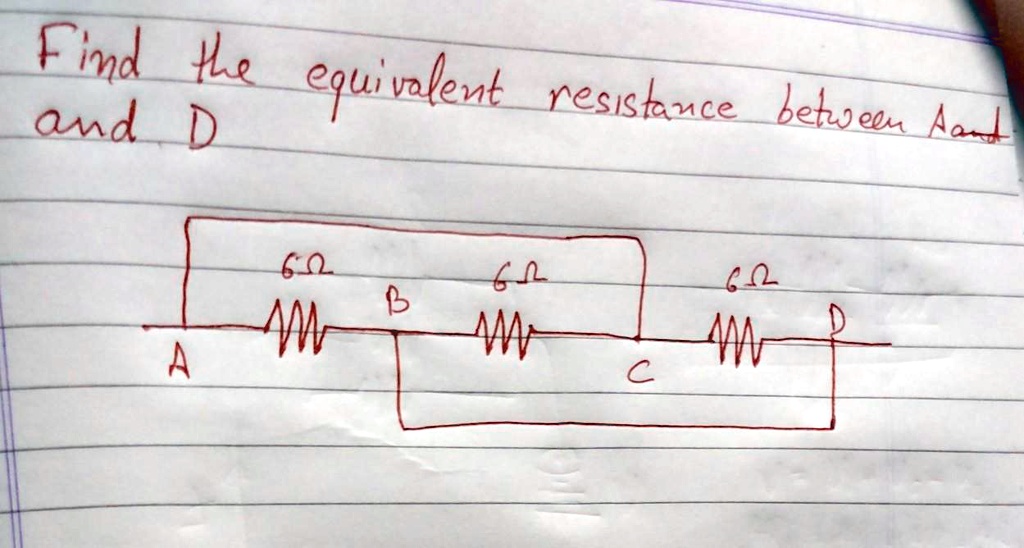 Find the equivalent resistance between A and
and D
6Ω 6Ω 6Ω
B D
A C